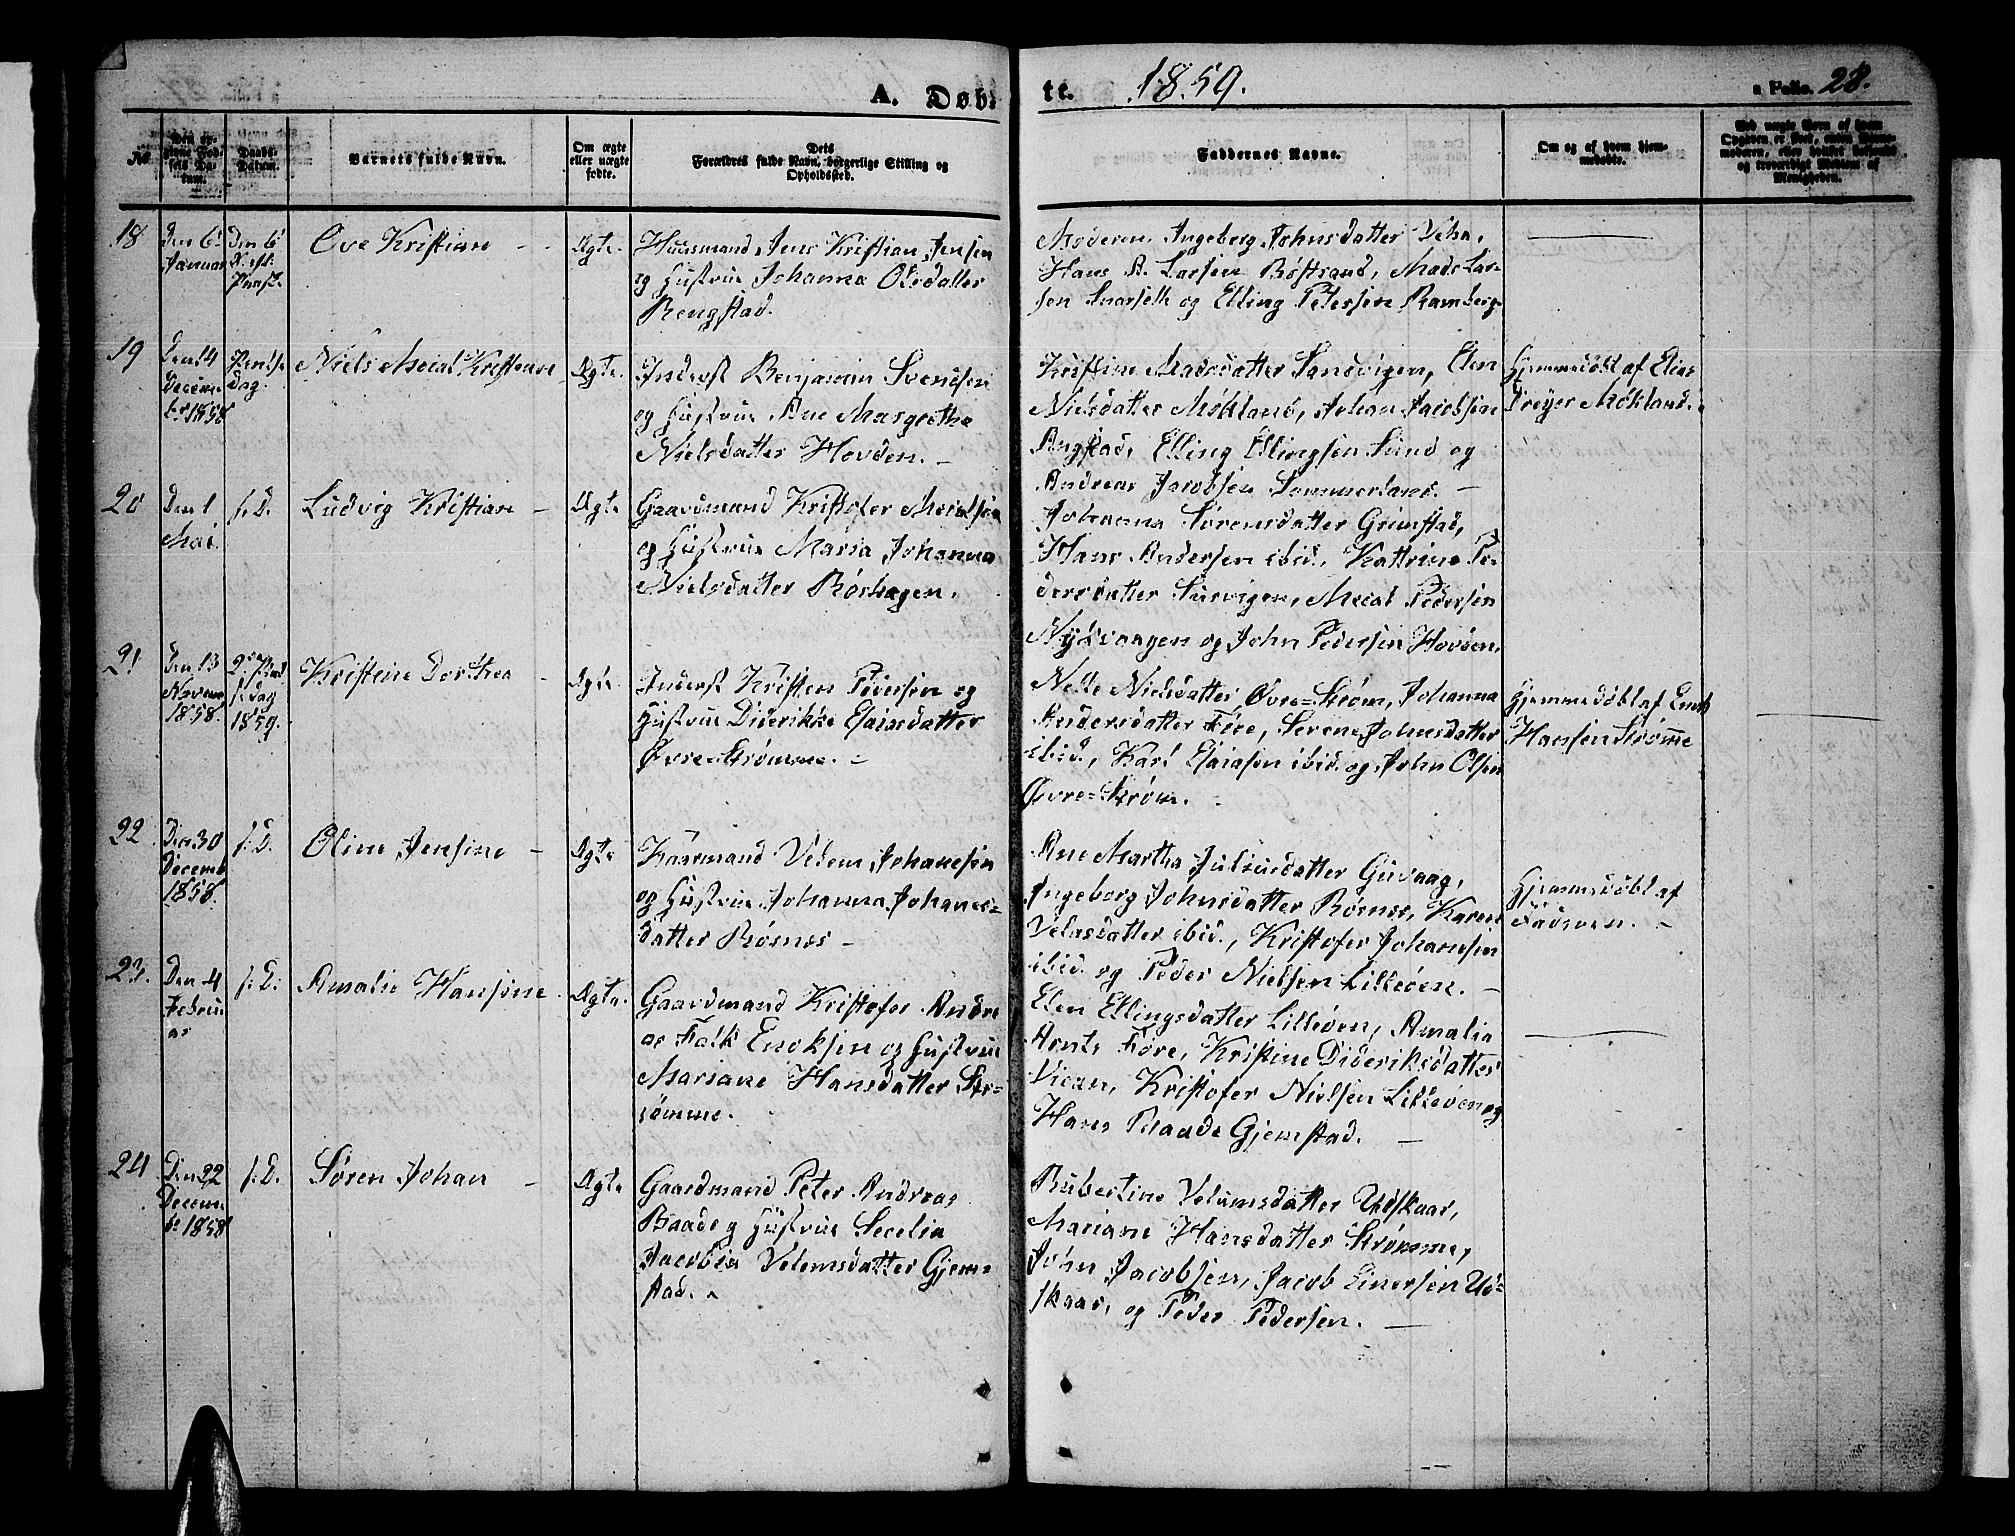 A. Døb- te. 1859. Folio. 28.
No.
Barnets fulde Navn.
Om ægte
eller uægte
fødte.
Dets
Forældres fulde Navn, borgerlige Stilling og
Opholdssted.
Faddernes Navne.
Om og af hvem hjem-
medøbte.
18
Den 6
Januar
Den 6
Ove Kristian
Ægte.
Huusmand Jens Kristian Jensen
og Hustrue Johanna Olsdatter
Rengstad.
Moderen, Ingeberg Johnsdatter
Hans A. Larsen Røstrand, Mads Lar-
sen og Elling Petersen Ramberg
19
Den 14
Decem-
br 1858
Pintse
dag
Niels Meial Kristense
Ægte.
Inderst Benjamin Svendsen
og Hustrue Ane Margrethe
Nielsdatter Hovden. -
Kristine Madsdatter Sandvigen, Elen
Nielsdatter Møkland, Johan Jacobsen
Angstad, Elling Ellingsen Sund og
Andreas Jacobsen Sommerland. -
Hjemmedøbt af Elias
Dreyer Møkland.
20
Den 1
Mai.
s. D.
Ludvig Kristian -
Ægte
Gaardmand Kristofer Meialsen
og Hustrue Maria Johanna
Nielsdatter Røshagen.
Johanna Sørensdatter Grimstad,
Hans Andersen ibid., Kattrine Pe-
dersdatter Survigen, Meial Pedersen
Nyksvaagen og John Pedersen Hovden.
21
Den 13
Novem
1858.
2den Pint
sedag
1859.
Kristine Dorthea -
Ægte
Inderst Kristen Pedersen og
Hustrue Diderikke Esaiasdatter
Øvre-Strømme. -
Nelle Nielsdatter Øvre-Strøm, Johanna
Andersdatter Føre, Serene Johnsdatter
ibid., Karl Esaiasen ibid. og John Olsen
Øvre-Strøm. -
Hjemmedøbt af
Hansen Strømme
22
Den 30
Decemb
1858.
s. D.
Oline Jensine -
Ægte
Huusmand Velem Johansen
og Hustrue Johanna Johanes-
datter Røsnes -
Ane Martha Julsindatter Guvaag,
Ingeborg Johnsdatter Røsnes, Karen
Velasdatter ibid., Kristofer Johansen
ibid. og Peder Nielsen Lilleøen. -
Hjemmedøbt af
Faderen. -
23.
Den 4
Febru
ar
s. D.
Amalie Hansine
Ægte.
Gaardmand Kristofer Andre
as Falk Enoksen og Hustrue
Mariane Hansdatter Str-
ømme.
Elen Ellingsdatter Lilleøen, Amalia
Arnts Føre, Kristine Dideriksdatter
Vican, Kristofer Nielsen Lilleøen og
Hans Baade Gjemstad. -
24
Den 22
Decem
br 1858
s. D.
Søren Johan -
Ægte
Gaardmand Peter Andreas
Baade og Hustrue Secelia
Jacobia Velemsdatter Gjem-
stad. -
Rubertine Velumsdatter Udskaar,
Mariane Hansdatter Strømme,
John Jacobsen, Jacob Einersen Ud-
skaar, og Peder Pedersen. -